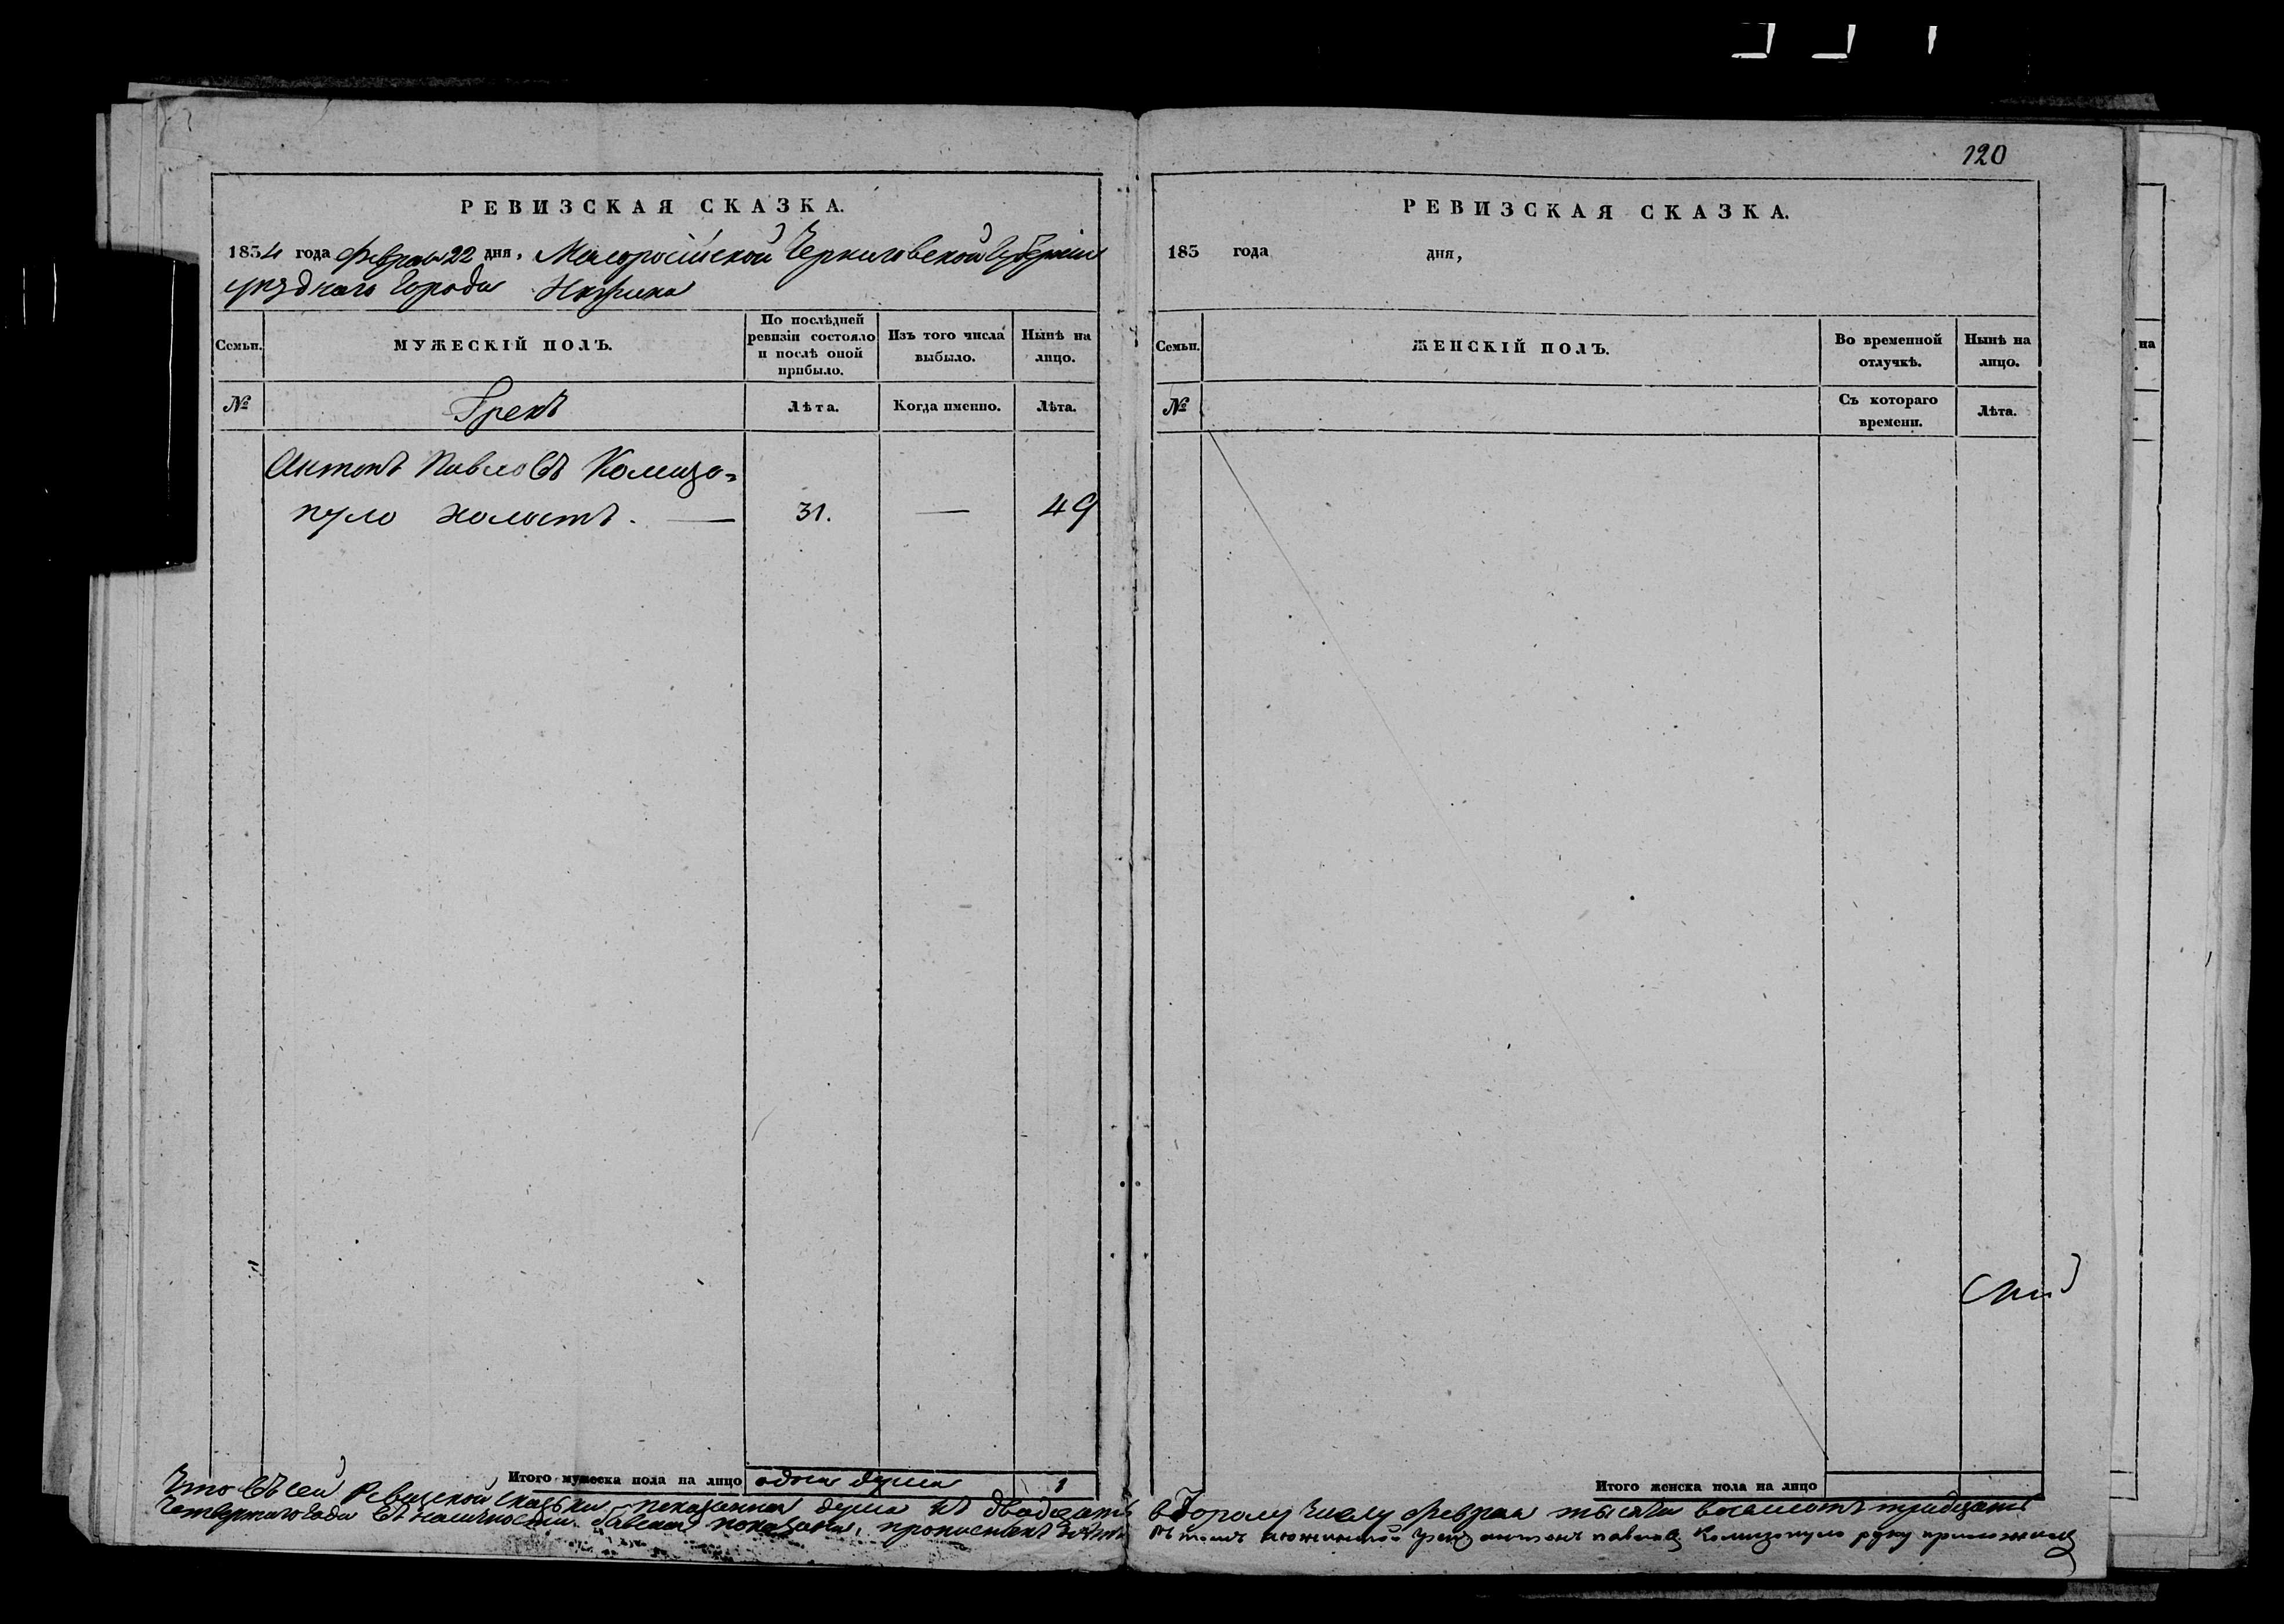 120
РЕВИЗСКАЯ СКАЗКА.
1834 года Февраля 22 дня, Малоросійской Черниговской Губерніи
уѣзднаго Города Нѣжина
Семьи.
МУЖЕСКІЙ ПОЛЪ.
По послѣдней ревизіи состояло и послѣ оной прибыло.
Изъ того числа выбыло.
Нынѣ на лицо.
№
Грекъ
Лѣта.
Когда именно.
Лѣта.
Антонъ Павловъ Комизо=
пуло холостъ. —
31.
—
49
Итого мужеска пола на лицо
одна душа
1
РЕВИЗСКАЯ СКАЗКА.
183 года дня,
Семьи.
ЖЕНСКІЙ ПОЛЪ.
Во временной отлучкѣ.
Нынѣ на лицо.
№
Съ котораго времени.
Лѣта.
Итого женска пола на лицо
Что въ сей Ревизской сказьки показанная душа къ двадцать второму числу февраля тысяча восемсотъ тридцать
четвертаго года въ наличности показана, въ томъ грекъ антонъ павловъ Комизопуло руку приложилъ